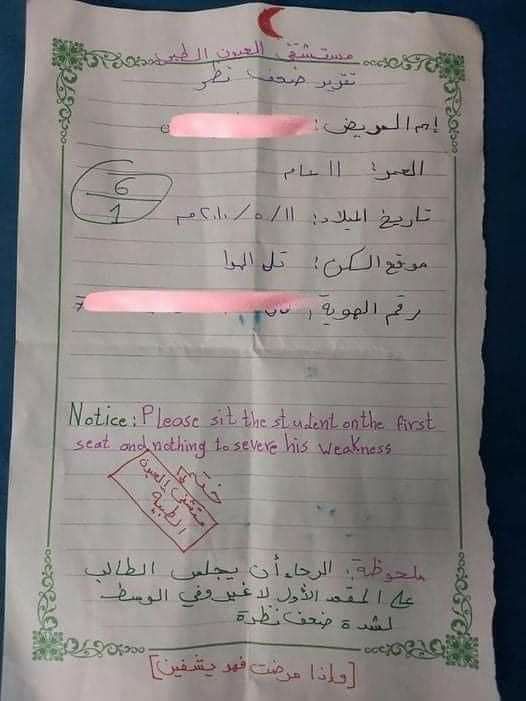 مستشفى العيون الطبي
تقرير ضعف نظر
إسم المريض:
العمر: ١١ عام
6
1
تاريخ الميلاد: ١١/٥/٢٠١٠م
موقع السكن: تل الهوا
رقم الهوية: 7
Notice: Please sit the student on the first
seat and nothing to severe his weakness
ختم
مستشفى العيون
الطبية
ملحوظة: الرجاء أن يجلس الطالب
على المقعد الأول لا غير وفي الوسط
لشدة ضعف نظرة
[وإذا مرضت فهو يشفين]